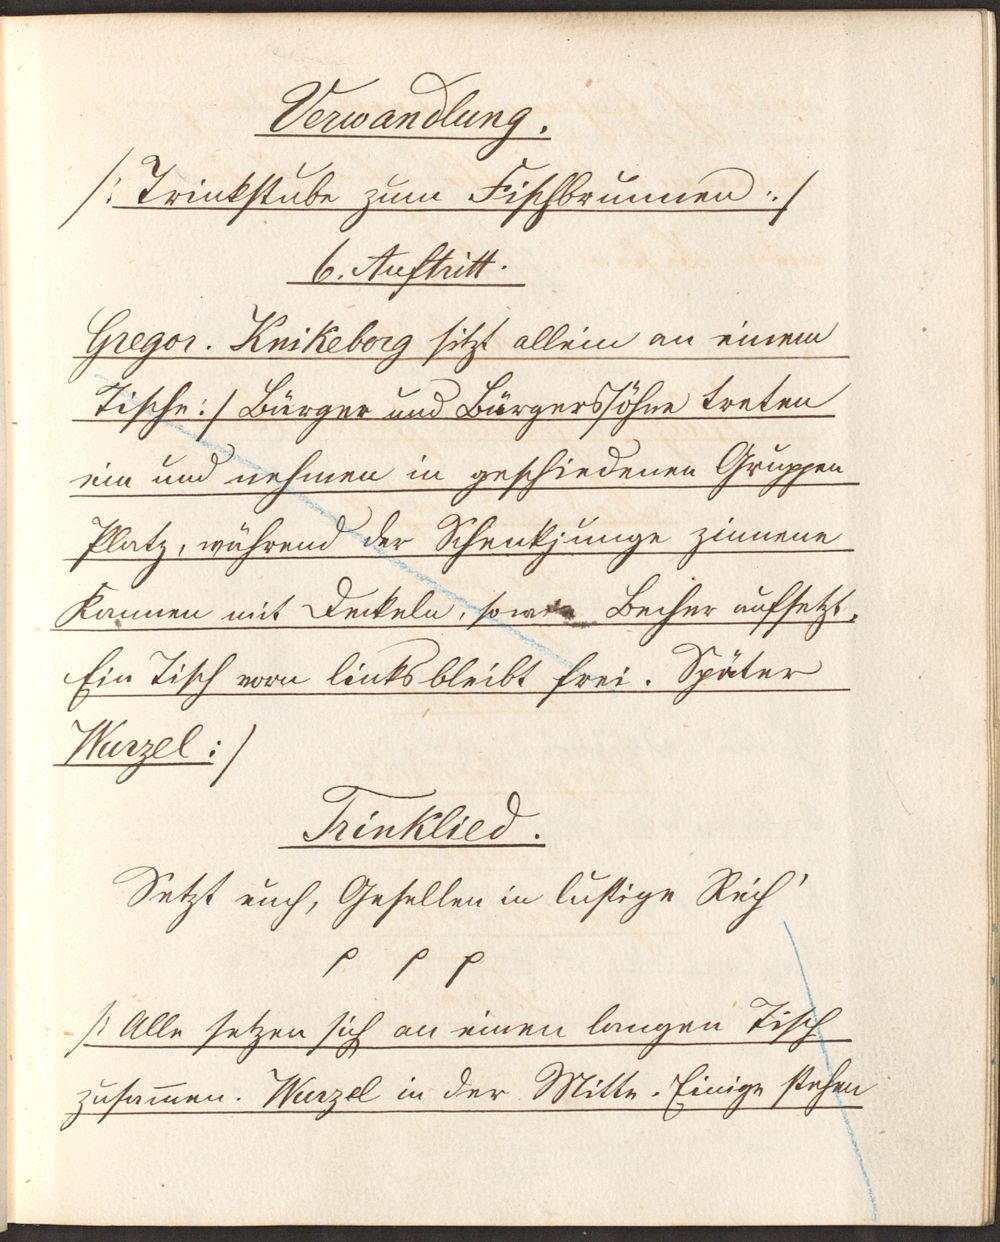 Verwandlung.
/: Trinkstube zum Fischbrunnen :/
6. Auftritt.
Gregor. Knikeborg sitzt allein an einem
Tische :/ Bürger und Bürgerssöhne treten
ein und nehmen in geschiedenen Gruppen
Platz, während der Schenkjunge zinnene
Kannen mit Deckeln, sowie Becher aufsetzt.
Ein Tisch vorn links bleibt frei. Später
Wurzel :/
Trinklied.
Setzt euch, Gesellen in lustige Reih'
/: Alle setzen sich an einen langen Tisch
zusam̅en. Wurzel in der Mitte. Einige stehen